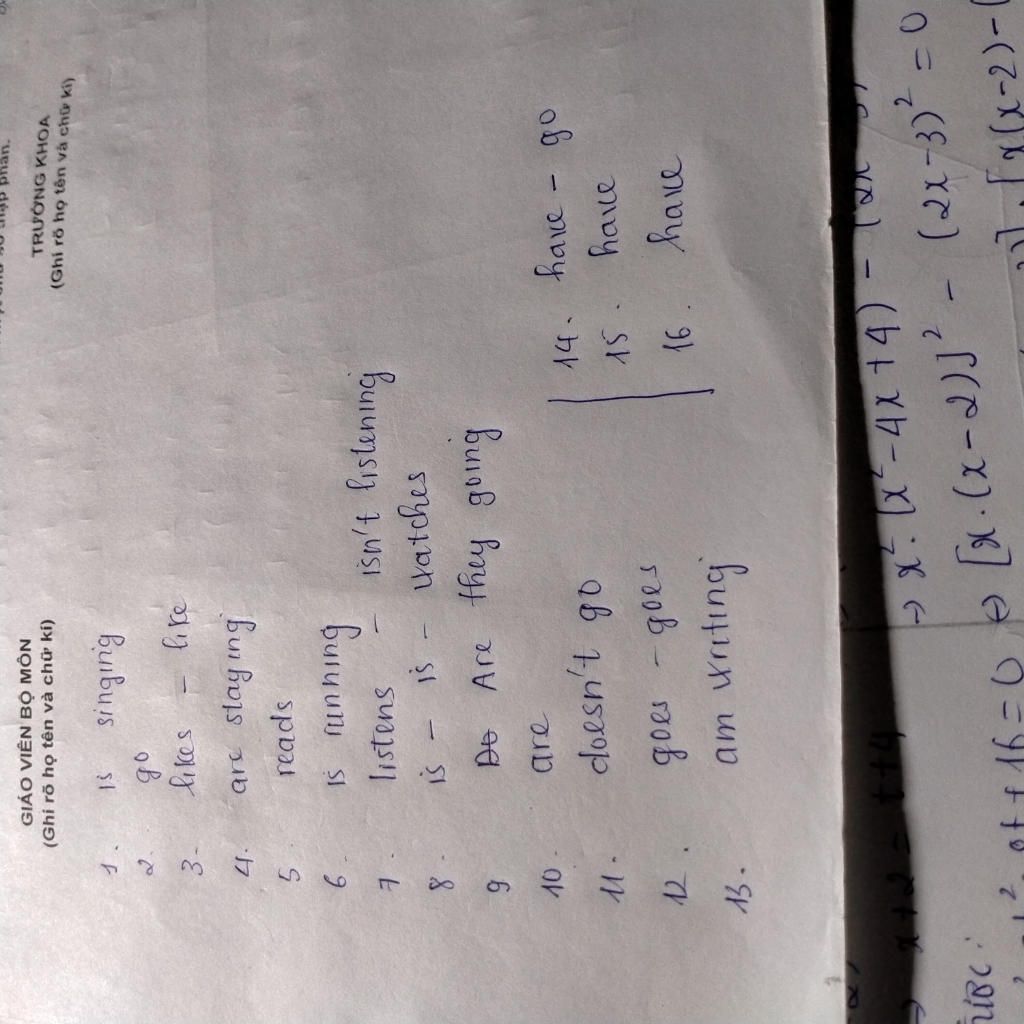 GIÁO VIÊN BỘ MÔN
(Ghi rõ họ tên và chữ kí)
TRƯỞNG KHOA
(Ghi rõ họ tên và chữ kí)
1. is singing
2. go
3. likes - like
4. are staying
5 reads
6. is running
7. listens - isn't listening
8. is - is - watches
9 Are they going
10. are
11. doesn't go
12. goes - goes
13. am writing
14. have - go
15. have
16. have
→ x + 2 = t + 4
→ x². (x² - 4x + 4) -
⇔ [x.(x - 2)]² - (2x - 3)² = 0